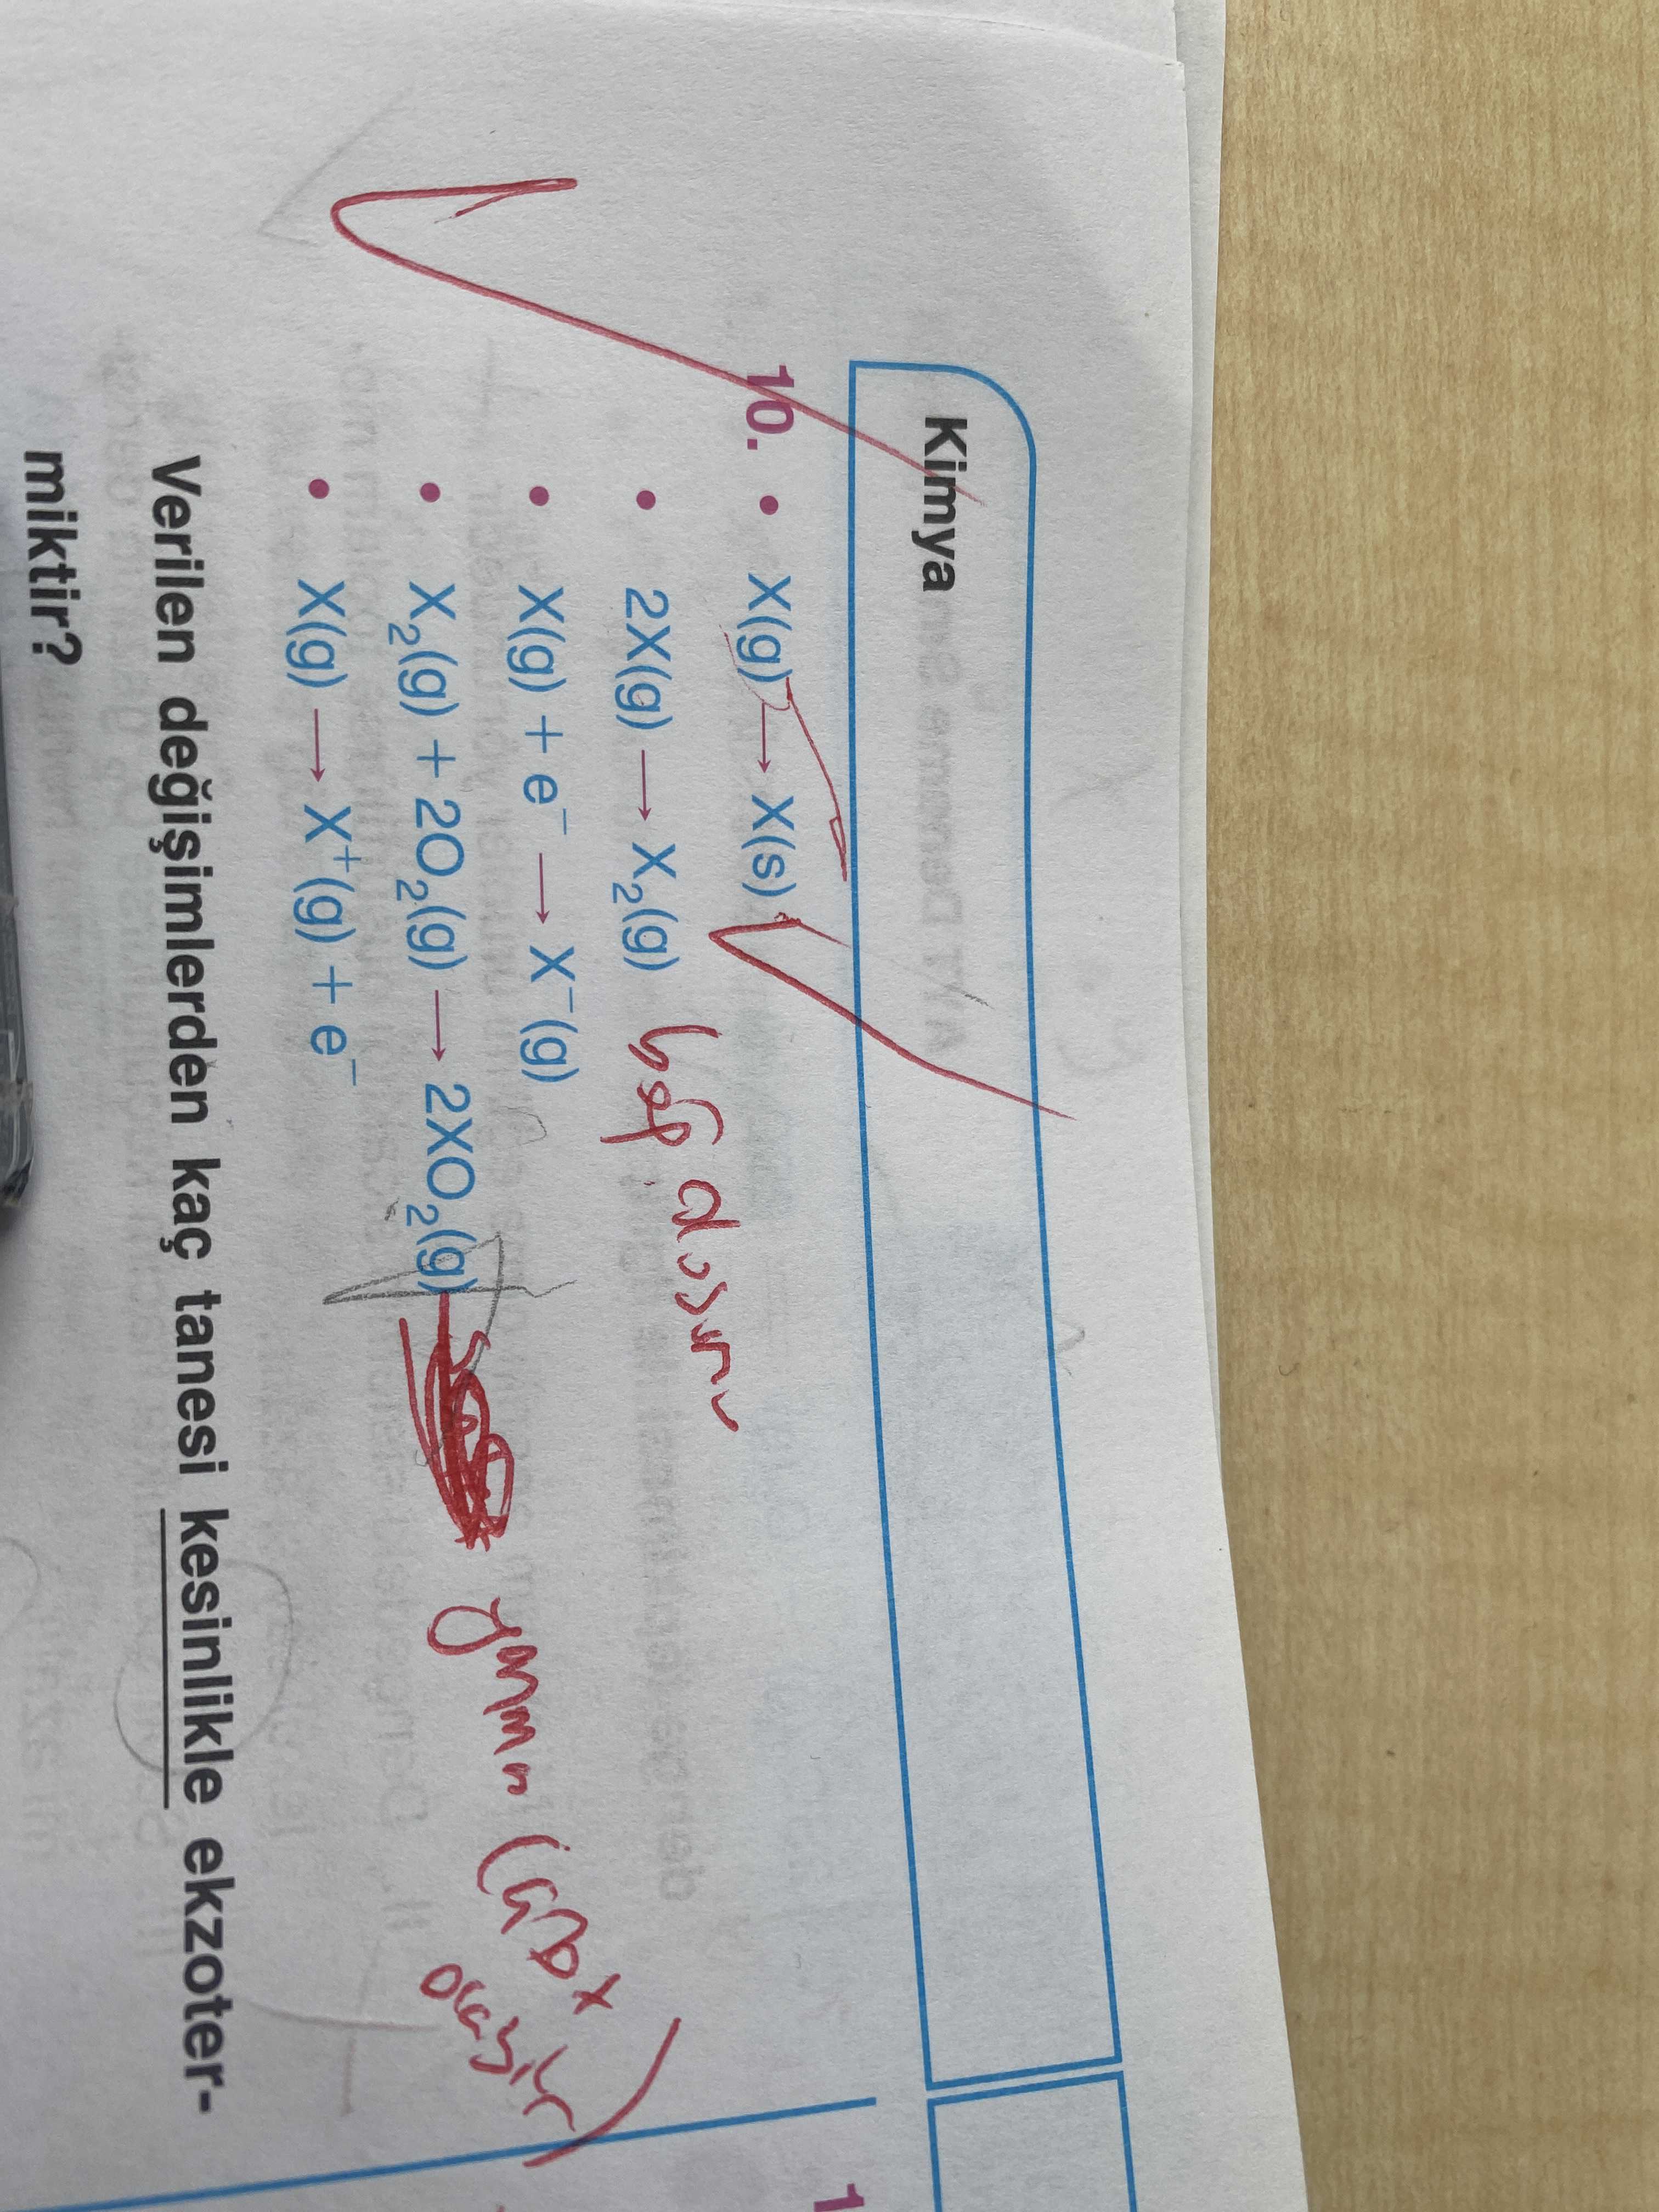 Kimya
10. • X(g) → X(s)
• 2X(g) → X₂(g) bağ oluşumu
• X(g) + e⁻ → X⁻(g)
• X₂(g) + 2O₂(g) → 2XO₂(g) yanma
• X(g) → X⁺(g) + e⁻
Verilen değişimlerden kaç tanesi kesinlikle ekzoter-
miktir?
1